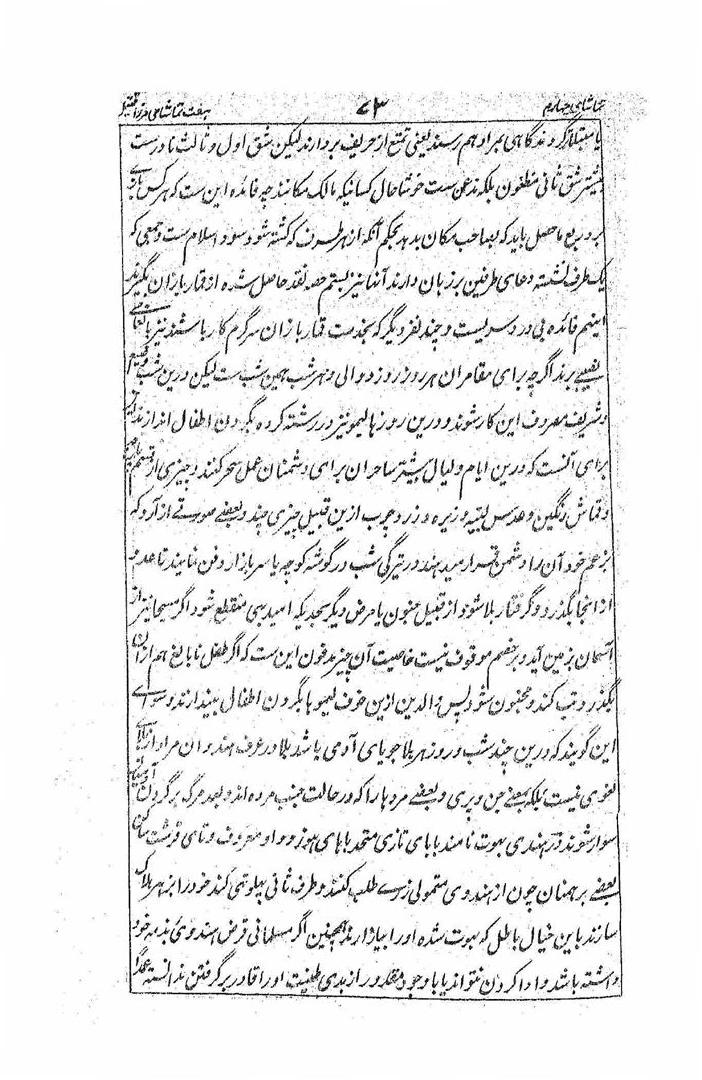 تماشای چهارم ۷۳ هفت تماشای مرزا قتیل
یا مبتلا گردند گاهی بمراد هم رسند یعنی تمتع از حریف بردارند لیکن شق اول و ثالث نادرست
بیشتر شق ثانی مظنون بلکه ندعن ست خوشا حال کسانیکه مالک مکانند چه فائده این ست که هر کس بازی
برد ربع ماحصل باید که بصاحب مکان بدهد بحکم آنکه از هر طرف که کشته شود سود اسلام ست و جمعی که
یک طرف نشسته دعای طرفین بر زبان دارند آنها نیز بستم حصه نقد حاصل شده از قمار بازان بگیرند
اینهم فائده بی دردسریست و چند نفر دیگر که بخدمت قمار بازان سرگرم کار باشند نیز
نصیبی برند اگرچه برای مقامران هر روز روز دوالی و هر شب همین شب ست لیکن درین شب وضیع
و شریف مصروف این کار شوند و درین روزها لیمو نیز در رشته کرده بگردن اطفال اندازند
برای آنست که درین ایام و لیال بیشتر ساحران برای دشمنان عمل سحر کنند و چیزی از قسم
و قماش رنگین و عدس پنبه و زیره و زردچوب ازین قبیل چیزی چند و بعضے صورتے از آرد که
بزعم خود آن را دشمن قرار میدهند در تیرگی شب در گوشه کوچه یا سر بازار دفن نمایند تا عدو
از انجا بگذرد و گرفتار بلا شود از قبیل جنون یا مرض دیگر بحدیکه امید بهی منقطع شود اگر مسیحا نیز از
آسمان بزمین آید و بر خصم موقوف نیست خاصیت آن چیز مدفون این ست که اگر طفل نابالغ هم ازان
بگذرد تب کند و مجنون شود پس والدین ازین خوف لیموها بگردن اطفال بیندازند و سوای
این گویند که درین چند شب و روز هر بلا جویای آدمی باشد بلا در عرف هندوان مراد از بلای
لغوی نیست بلکه بمعنے جن و پری و بعضے مردها را که در حالت جنب مرده اند و بعد مرگ بر گردن
سوار شوند در هندی بهوت نامند با بای تازی متحد باهای هوز و واو معروف و تای قرشت ساکن
بعضے برهمنان چون از هندوی متمولی زرے طلب کنند و طرف ثانی پهلوتهی کند خود را بزهر هلاک
سازند باین خیال باطل که بهوت شده او را بیازارند همچنین اگر مسلمانی قرض هندوی بذمه خود
داشته باشد و ادا کردن نتواند یا باوجود مقدور از بدی طینت او را قادر بر گرفتن ندانسته عمدا